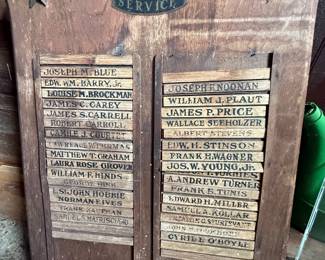 SERVICE
JOSEPH M. BLUE
EDW. WM. BARRY, Jr.
LOUISE M. BROCKMAN
JAMES C. CAREY
JAMES S. CARRELL
ROBERT CARROLL
MATTHEW T. GRAHAM
LAURA ROSE GROVER
WILLIAM F. HINDS
L. ST. JOHN HOBBIE
NORMAN E. IVES
KAUFMAN
JOSEPH F. NOONAN
WILLIAM J. PLAUT
JAMES P. PRICE
WALLACE SEEHOLZER
ALBERT STEVENS
EDW. H. STINSON
FRANK H. WAGNER
JOS. W. YOUNG, Jr.
VORHIES
A. ANDREW TURNER
FRANK E. TUNIS
EDWARD H. MILLER
SAMUEL A. KOLLAR
CYRIL E. O'BOYLE